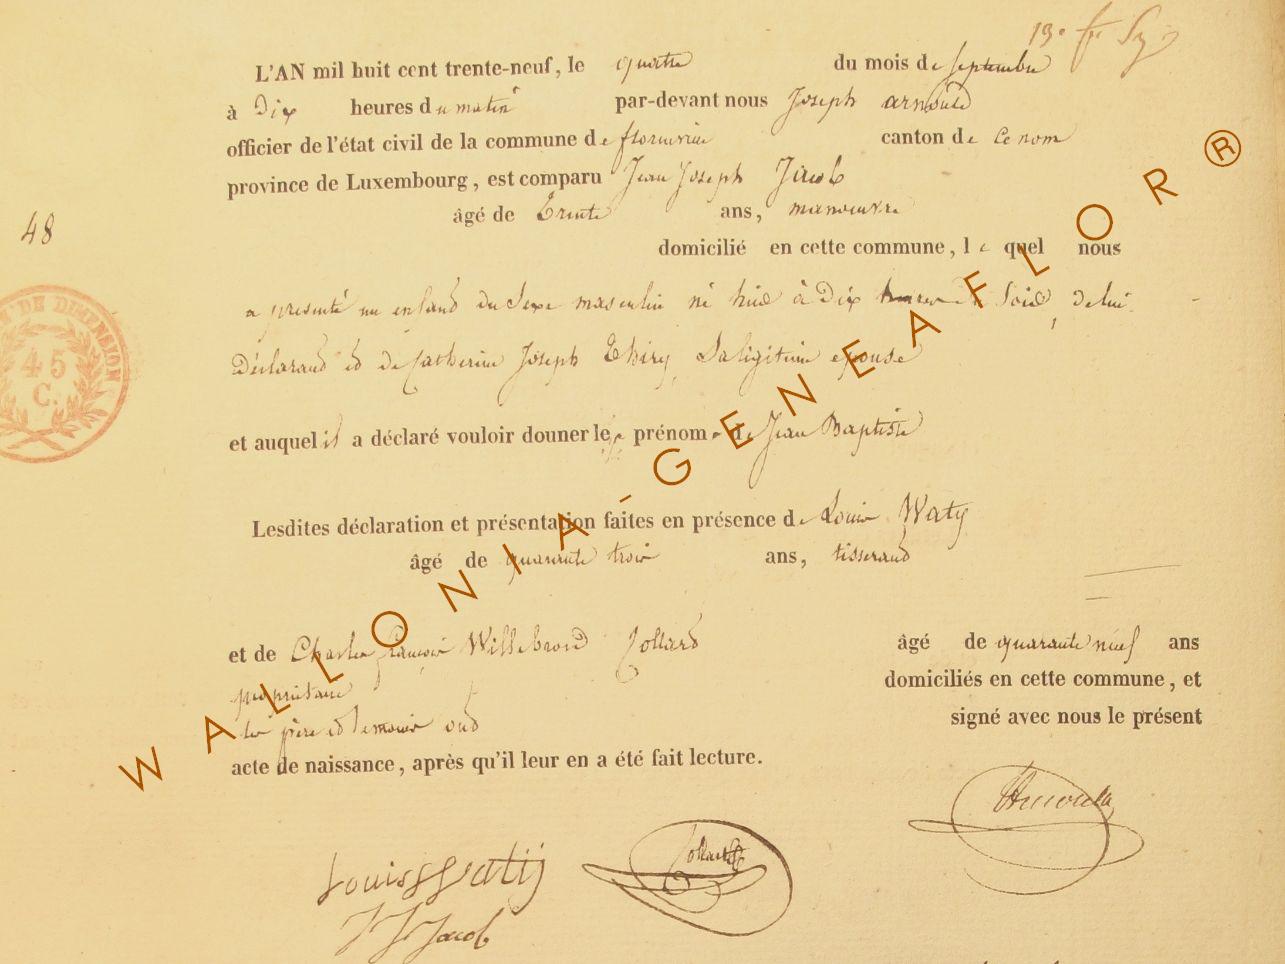 19e
L'AN mil huit cent trente-neuf, le quatre du mois de septembre
à Dix heures du matin par-devant nous Joseph arnould
officier de l'état civil de la commune de florenville canton de Ce nom
province de Luxembourg, est comparu Jean Joseph Jacob
âgé de trente ans, manoeuvre
48
domicilié en cette commune, le quel nous
a presenté un enfant du Sexe masculin né hier à Dix heures du Soir, de lui
Déclarant et de Catherine Joseph Thiry, Sa légitime epouse
et auquel il a déclaré vouloir donner le prénom de Jean Baptiste
Lesdites déclaration et présentation faites en présence de Louis Waty
âgé de quarante trois ans, tisserand
et de Charles françois Willebrord Collard âgé de quarante neuf ans
propriétaire domiciliés en cette commune, et
les père et temoins ont signé avec nous le présent
acte de naissance, après qu'il leur en a été fait lecture.
Arnould
Louis Watij Collard
J J Jacob
DE DIMENSION
45
C.
WALLONIA-GENEAFLOR®